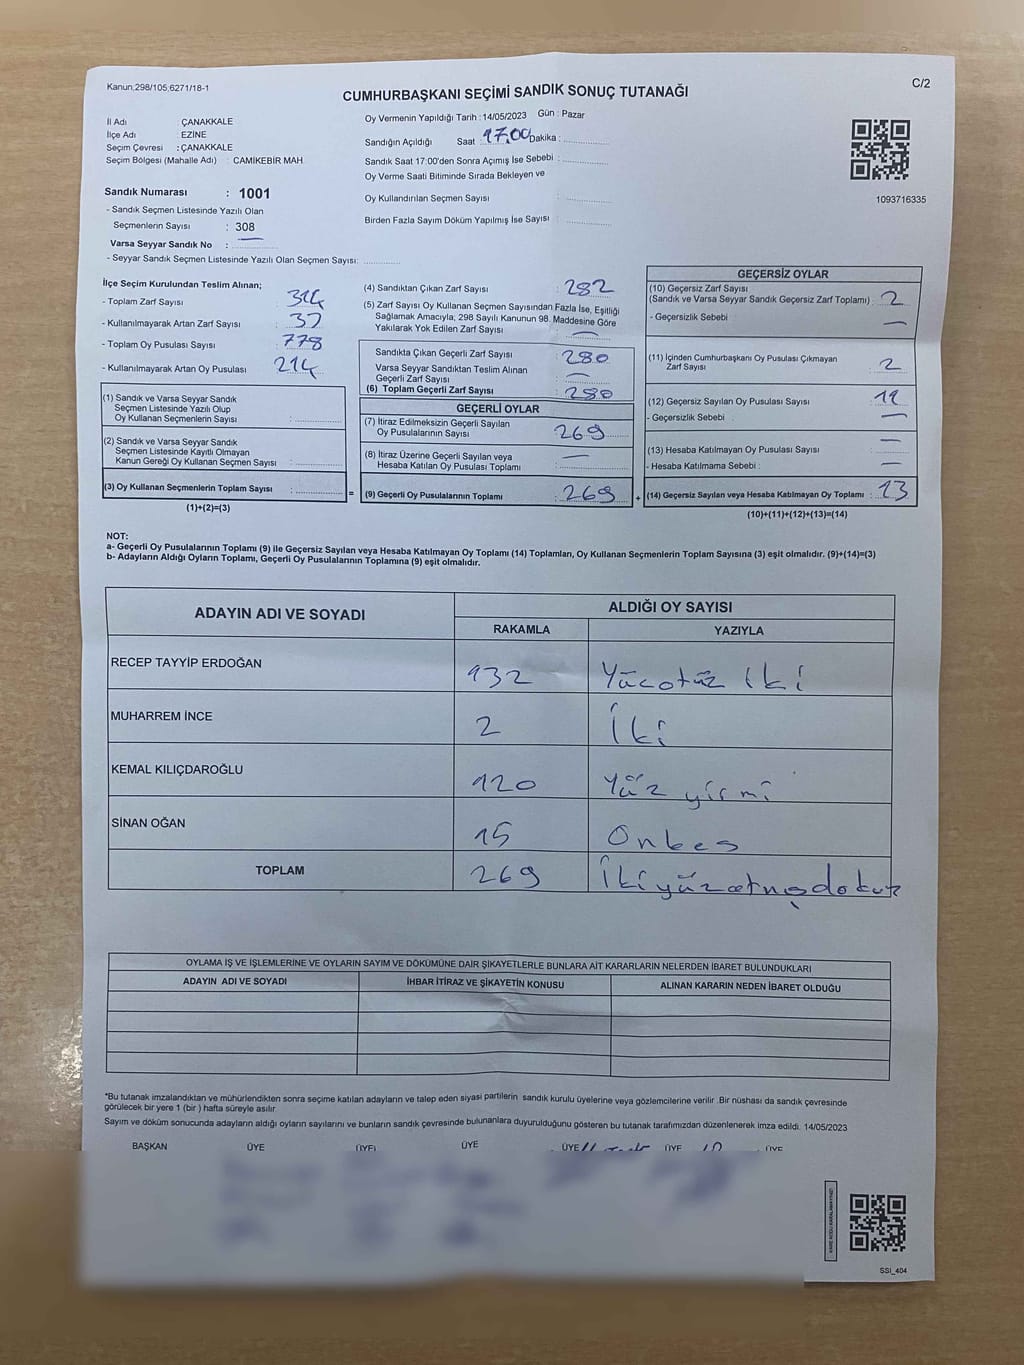 Kanun;298/105;6271/18-1
C/2
CUMHURBAŞKANI SEÇİMİ SANDIK SONUÇ TUTANAĞI
İl Adı : ÇANAKKALE
İlçe Adı : EZİNE
Seçim Çevresi : ÇANAKKALE
Seçim Bölgesi (Mahalle Adı) : CAMİKEBİR MAH.
Sandık Numarası : 1001
- Sandık Seçmen Listesinde Yazılı Olan
Seçmenlerin Sayısı : 308
Varsa Seyyar Sandık No :
- Seyyar Sandık Seçmen Listesinde Yazılı Olan Seçmen Sayısı:
Oy Vermenin Yapıldığı Tarih : 14/05/2023 Gün : Pazar
Sandığın Açıldığı Saat : 17.00 Dakika :
Sandık Saat 17:00'den Sonra Açımış İse Sebebi :
Oy Verme Saati Bitiminde Sırada Bekleyen ve
Oy Kullandırılan Seçmen Sayısı :
Birden Fazla Sayım Döküm Yapılmış İse Sayısı :
1093716335
İlçe Seçim Kurulundan Teslim Alınan;
- Toplam Zarf Sayısı :
- Kullanılmayarak Artan Zarf Sayısı :
- Toplam Oy Pusulası Sayısı : 778
- Kullanılmayarak Artan Oy Pusulası : 214
(1) Sandık ve Varsa Seyyar Sandık
Seçmen Listesinde Yazılı Olup
Oy Kullanan Seçmenlerin Sayısı :
(2) Sandık ve Varsa Seyyar Sandık
Seçmen Listesinde Kayıtlı Olmayan
Kanun Gereği Oy Kullanan Seçmen Sayısı :
(3) Oy Kullanan Seçmenlerin Toplam Sayısı : =
(1)+(2)=(3)
(4) Sandıktan Çıkan Zarf Sayısı : 282
(5) Zarf Sayısı Oy Kullanan Seçmen Sayısından Fazla İse, Eşitliği
Sağlamak Amacıyla, 298 Sayılı Kanunun 98. Maddesine Göre
Yakılarak Yok Edilen Zarf Sayısı : —
Sandıkta Çıkan Geçerli Zarf Sayısı : 280
Varsa Seyyar Sandıktan Teslim Alınan
Geçerli Zarf Sayısı : —
(6) Toplam Geçerli Zarf Sayısı : 280
GEÇERLİ OYLAR
(7) İtiraz Edilmeksizin Geçerli Sayılan
Oy Pusulalarının Sayısı : 269
(8) İtiraz Üzerine Geçerli Sayılan veya
Hesaba Katılan Oy Pusulası Toplamı : —
(9) Geçerli Oy Pusulalarının Toplamı : 269 +
GEÇERSİZ OYLAR
(10) Geçersiz Zarf Sayısı
(Sandık ve Varsa Seyyar Sandık Geçersiz Zarf Toplamı) : 2
- Geçersizlik Sebebi : —
(11) İçinden Cumhurbaşkanı Oy Pusulası Çıkmayan
Zarf Sayısı : 2
(12) Geçersiz Sayılan Oy Pusulası Sayısı :
- Geçersizlik Sebebi : —
(13) Hesaba Katılmayan Oy Pusulası Sayısı : —
- Hesaba Katılmama Sebebi : —
(14) Geçersiz Sayılan veya Hesaba Katılmayan Oy Toplamı : 13
(10)+(11)+(12)+(13)=(14)
NOT:
a- Geçerli Oy Pusulalarının Toplamı (9) ile Geçersiz Sayılan veya Hesaba Katılmayan Oy Toplamı (14) Toplamları, Oy Kullanan Seçmenlerin Toplam Sayısına (3) eşit olmalıdır. (9)+(14)=(3)
b- Adayların Aldığı Oyların Toplamı, Geçerli Oy Pusulalarının Toplamına (9) eşit olmalıdır.
ADAYIN ADI VE SOYADI
ALDIĞI OY SAYISI
RAKAMLA YAZIYLA
RECEP TAYYİP ERDOĞAN 132 Yüzotuz iki
MUHARREM İNCE 2 İki
KEMAL KILIÇDAROĞLU 120 Yüz yirmi
SİNAN OĞAN 15 Onbeş
TOPLAM 269 İkiyüzatmışdokuz
OYLAMA İŞ VE İŞLEMLERİNE VE OYLARIN SAYIM VE DÖKÜMÜNE DAİR ŞİKAYETLERLE BUNLARA AİT KARARLARIN NELERDEN İBARET BULUNDUKLARI
ADAYIN ADI VE SOYADI İHBAR İTİRAZ VE ŞİKAYETİN KONUSU ALINAN KARARIN NEDEN İBARET OLDUĞU
*Bu tutanak imzalandıktan ve mühürlendikten sonra seçime katılan adayların ve talep eden siyasi partilerin sandık kurulu üyelerine veya gözlemcilerine verilir .Bir nüshası da sandık çevresinde
görülecek bir yere 1 (bir ) hafta süreyle asılır.
Sayım ve döküm sonucunda adayların aldığı oyların sayılarını ve bunların sandık çevresinde bulunanlara duyurulduğunu gösteren bu tutanak tarafımızdan düzenlenerek imza edildi. 14/05/2023
BAŞKAN ÜYE ÜYE ÜYE ÜYE ÜYE ÜYE
SSI_404